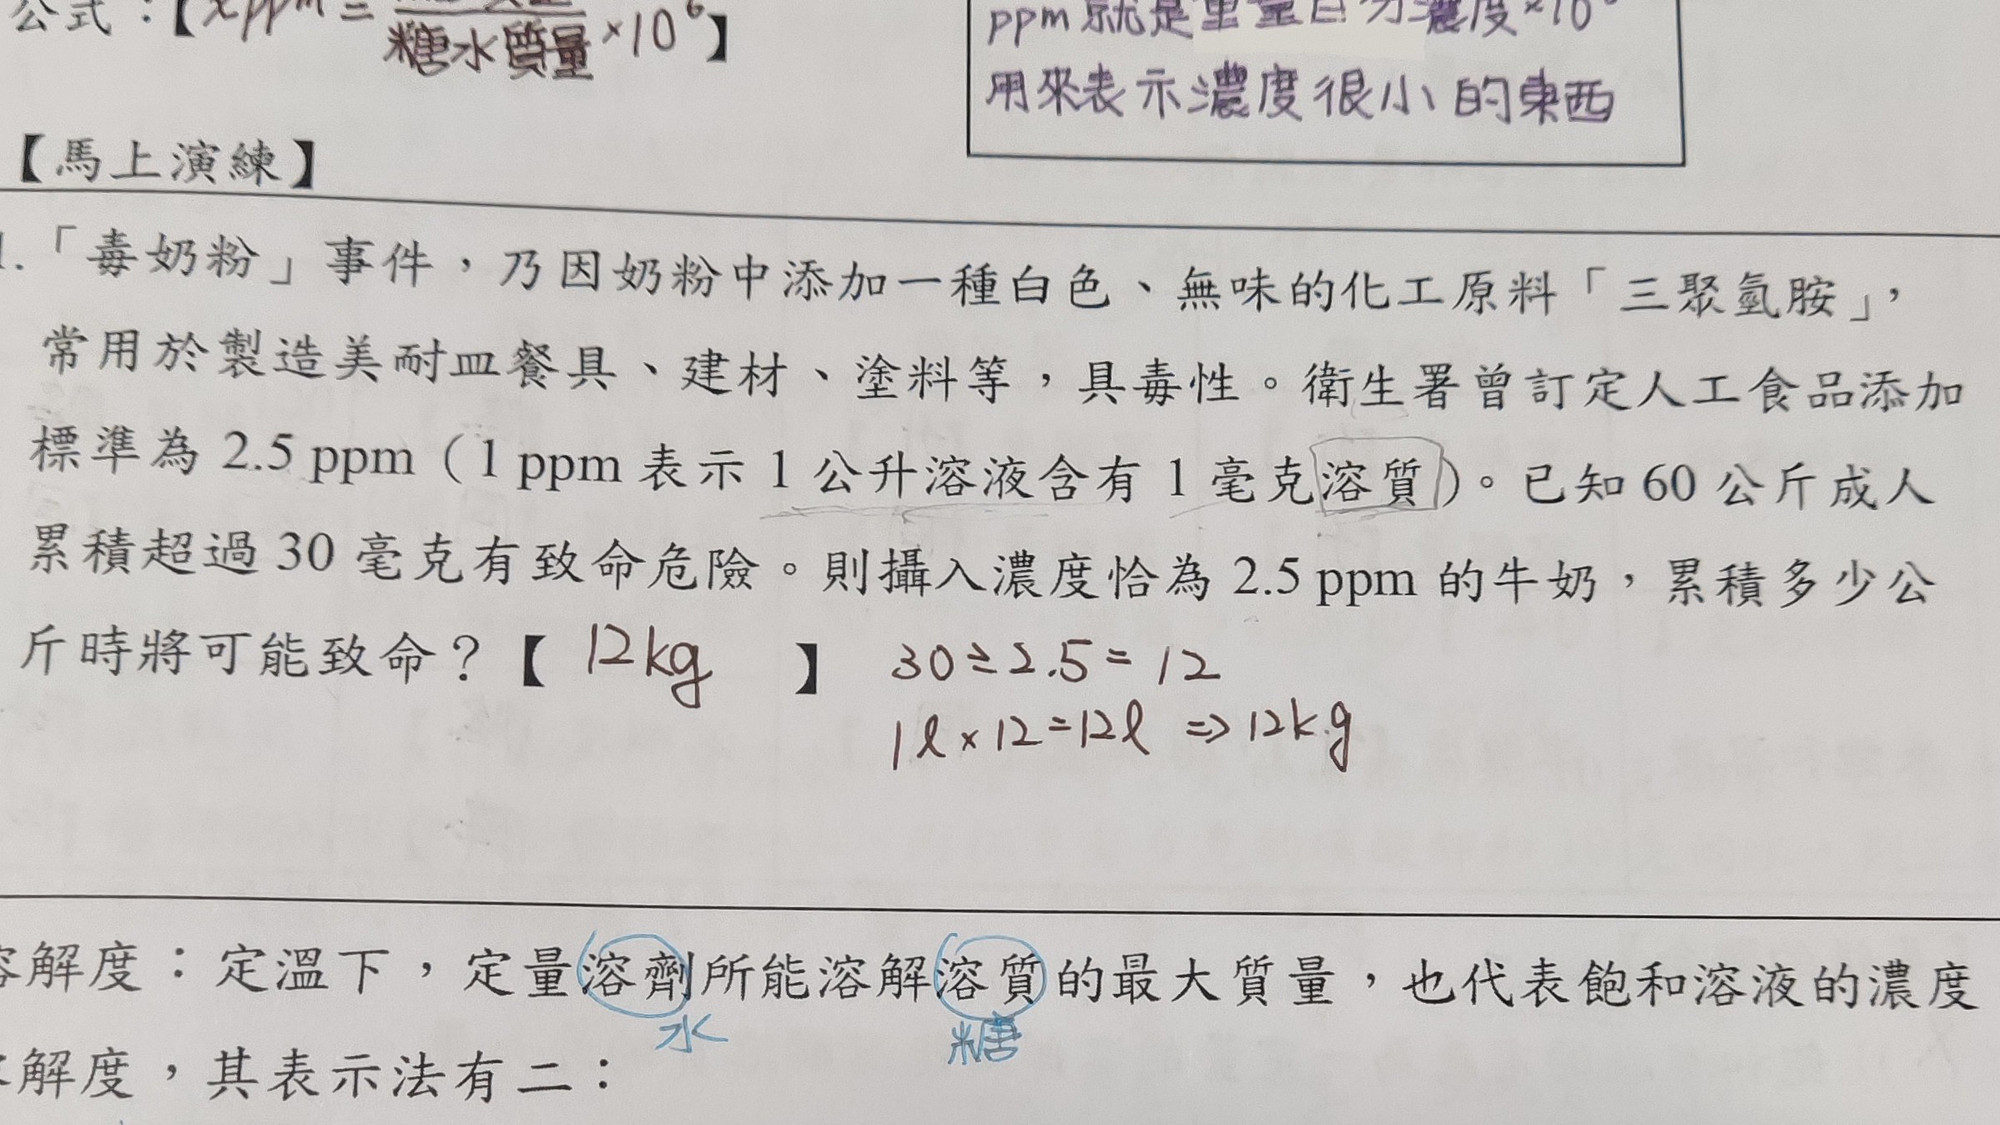 公式：【xppm = 糖水質量 ×10⁶】
ppm就是重量百分濃度×10⁶
用來表示濃度很小的東西
【馬上演練】
1.「毒奶粉」事件，乃因奶粉中添加一種白色、無味的化工原料「三聚氫胺」，
常用於製造美耐皿餐具、建材、塗料等，具毒性。衛生署曾訂定人工食品添加
標準為 2.5 ppm（1 ppm 表示 1 公升溶液含有 1 毫克溶質）。已知 60 公斤成人
累積超過 30 毫克有致命危險。則攝入濃度恰為 2.5 ppm 的牛奶，累積多少公
斤時將可能致命？【 12kg 】
30÷2.5=12
1ℓ×12=12ℓ ⇒12kg
溶解度：定溫下，定量溶劑所能溶解溶質的最大質量，也代表飽和溶液的濃度
水 糖
解度，其表示法有二：